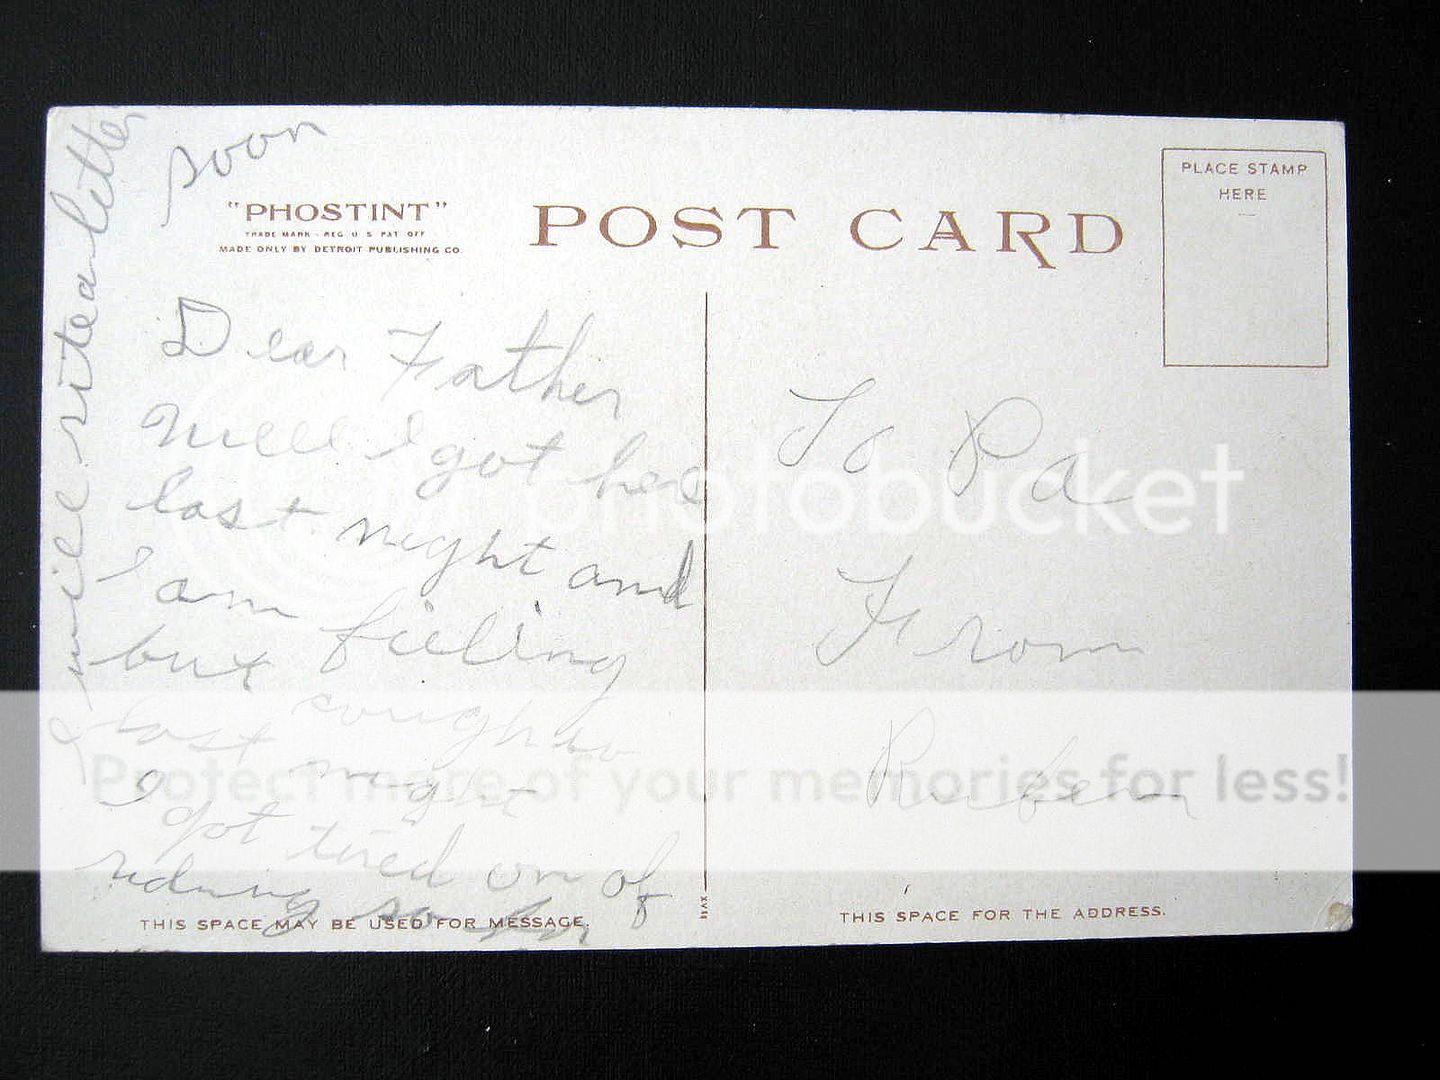 soon
"PHOSTINT"
TRADE MARK - REG U S PAT OFF
MADE ONLY BY DETROIT PUBLISHING CO.
POST CARD
PLACE STAMP
HERE
Dear Father
Well I got here
last night and
I am fieling
but
last night
I got tired on of
riding so
I will rite a letter
To Pa
From
Ruben
THIS SPACE MAY BE USED FOR MESSAGE.
THIS SPACE FOR THE ADDRESS.
photobucket
Protect more of your memories for less!